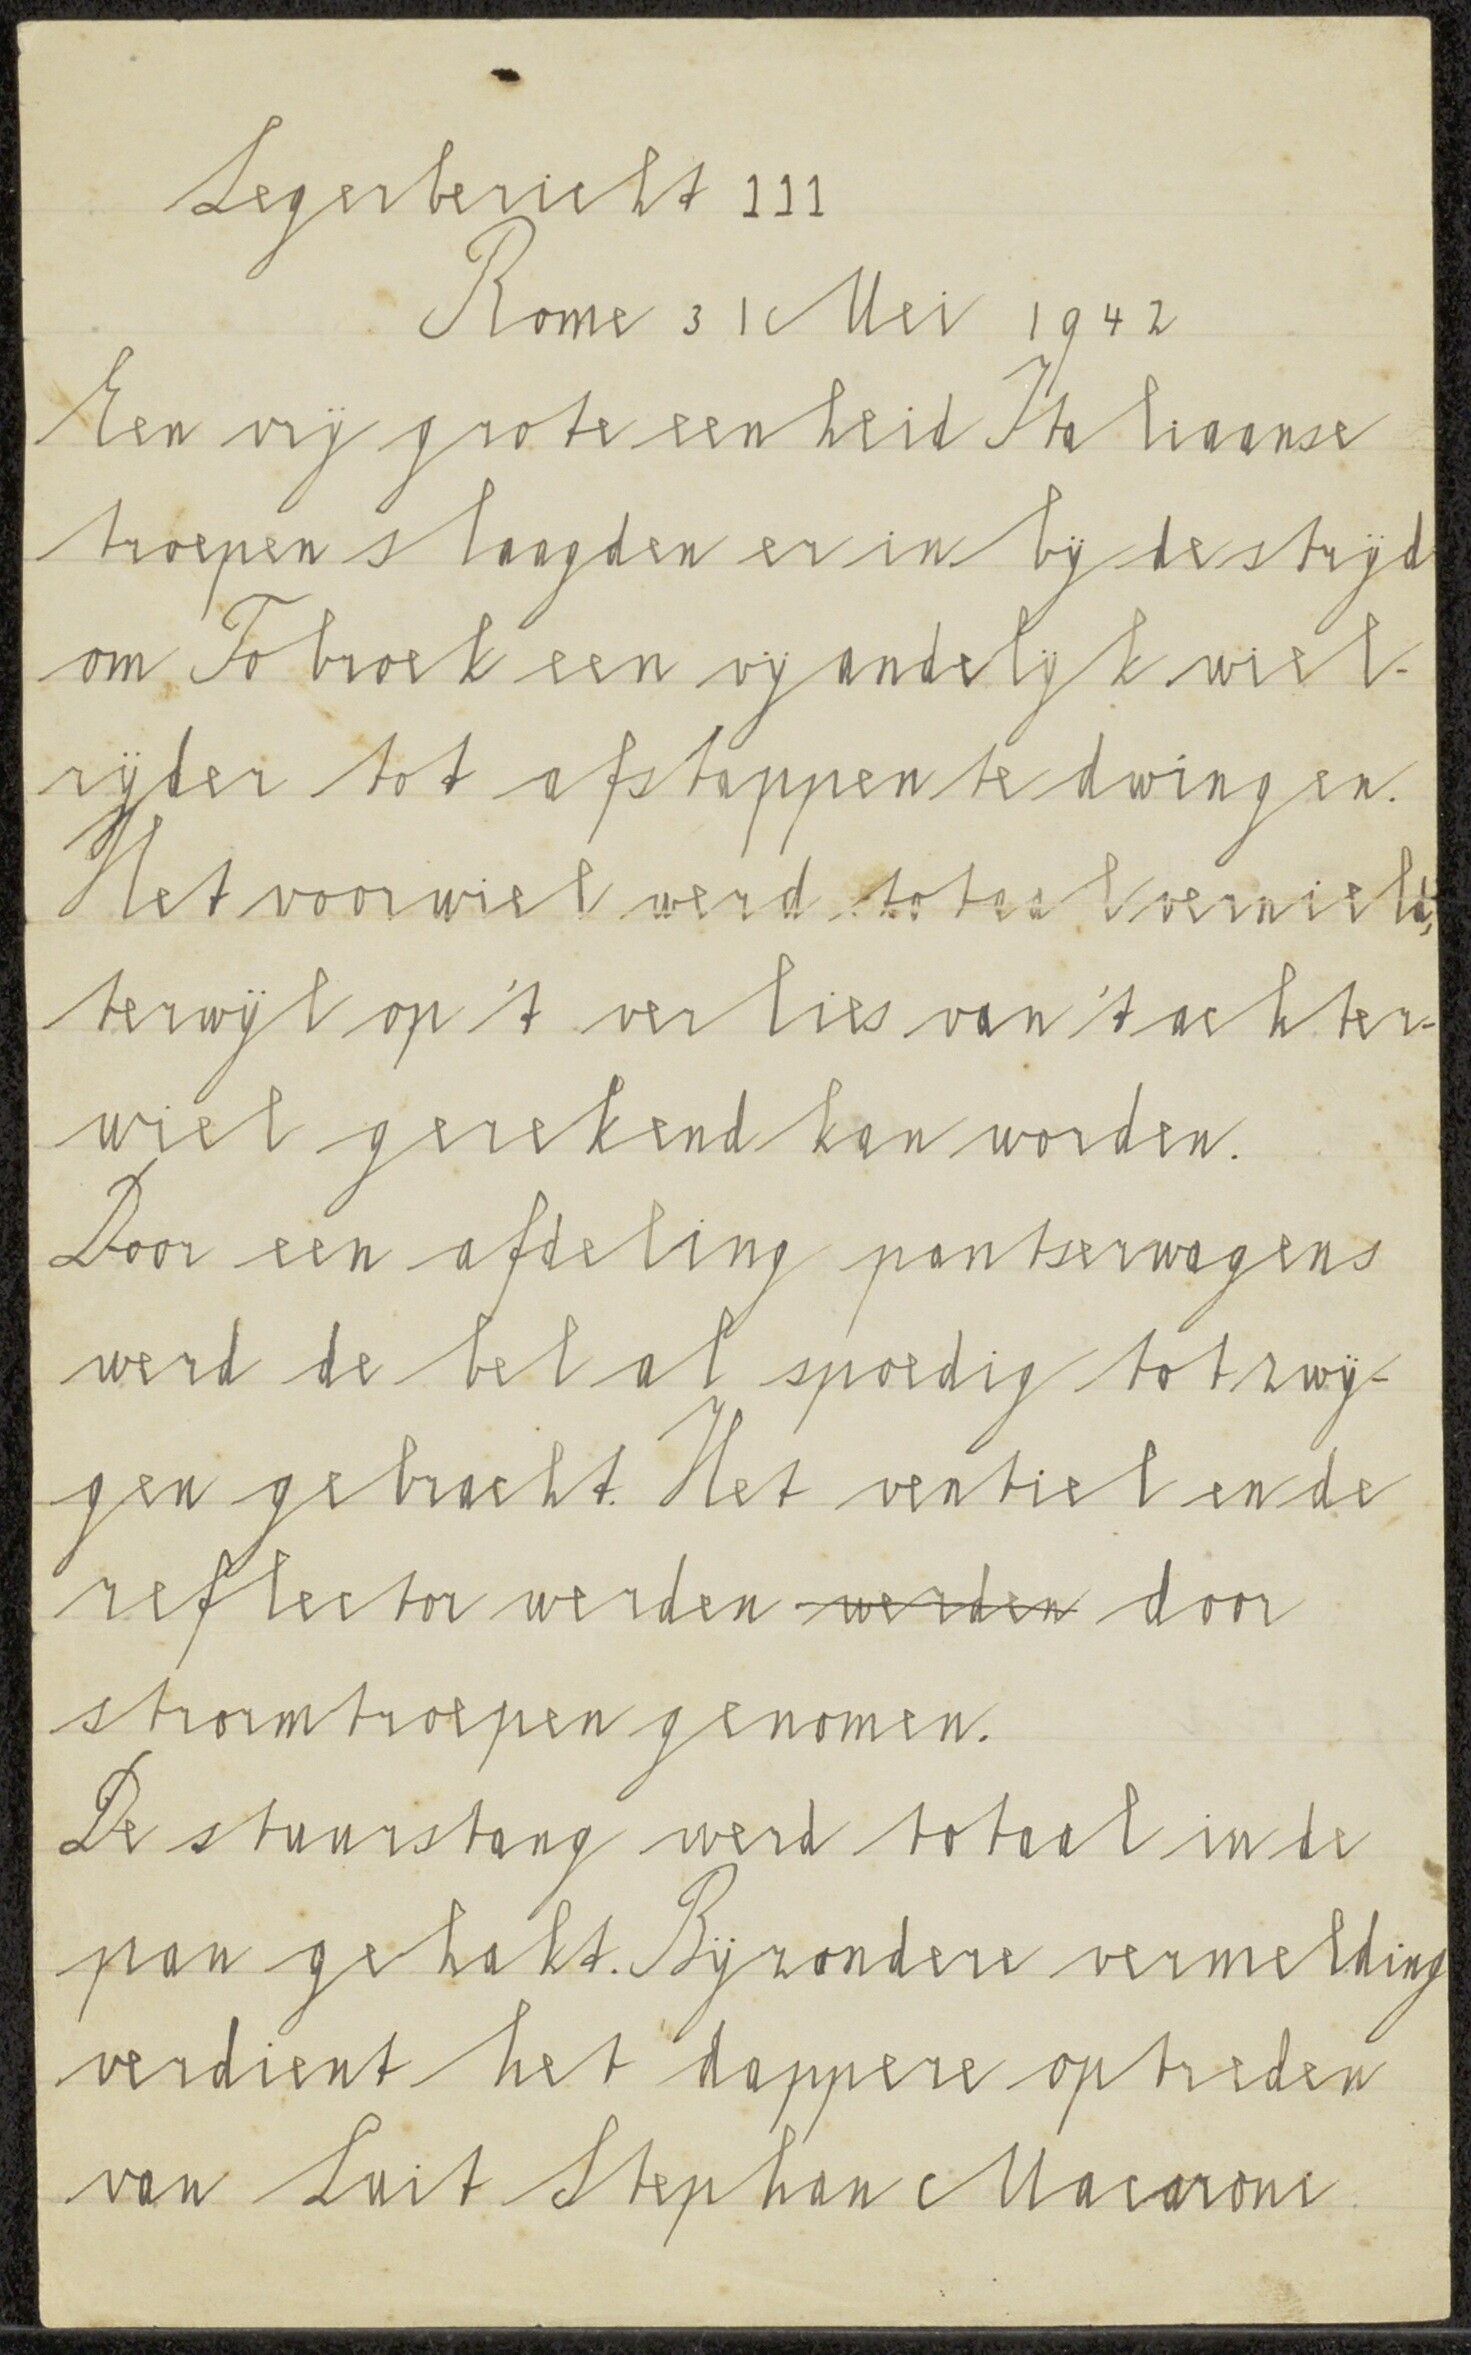 Legerbericht 111
Rome 31 Mei 1942
Een vrij grote eenheid Italiaanse
troepen slaagden er in bij de strijd
om Tobroek een vijandelijk wiel-
rijder tot afstappen te dwingen.
Het voorwiel werd totaal vernield,
terwijl op 't verlies van 't achter-
wiel gerekend kan worden.
Door een afdeling pantserwagens
werd de bel al spoedig tot zwij-
gen gebracht. Het ventiel en de
reflector werden werden door
stormtroepen genomen.
De stuurstang werd totaal in de
pan gehakt. Bijzondere vermelding
verdient het dappere optreden
van Luit Stephan Macaroni